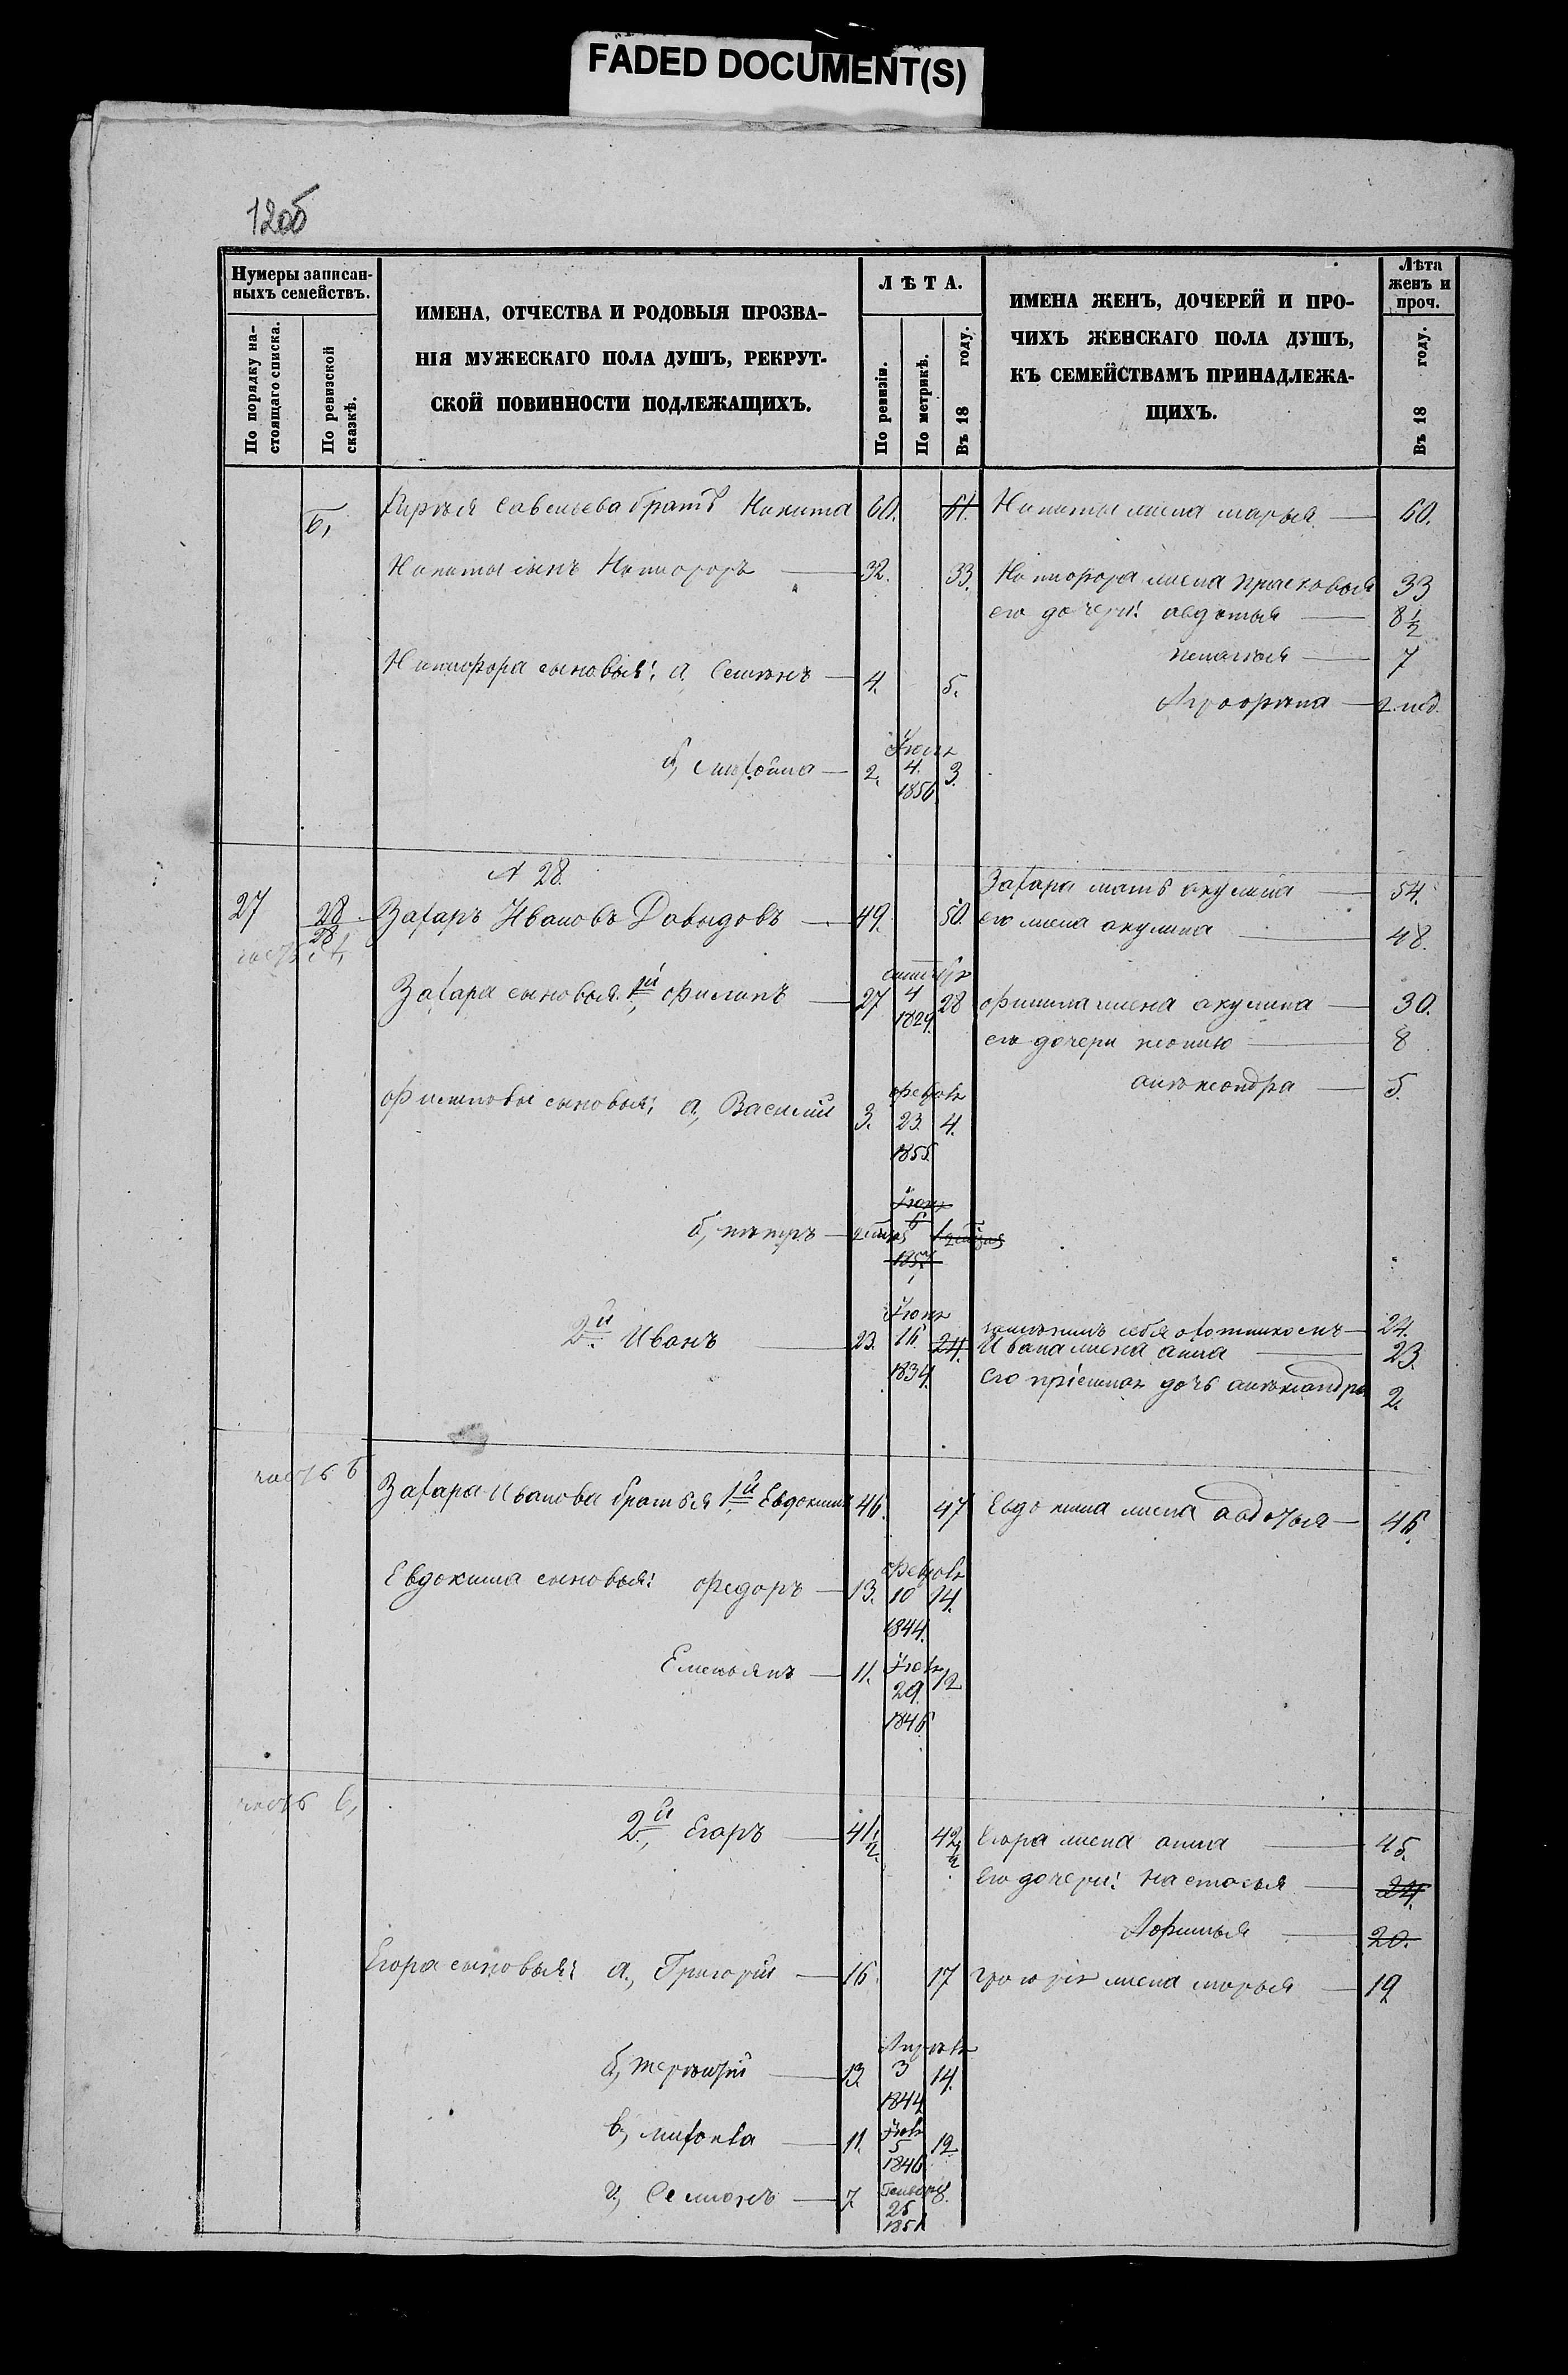 FADED DOCUMENT(S)
12об
Нумеры записан-
ныхъ семействъ.
По порядку на-
стоящаго списка.
По ревизской
сказкѣ.
ИМЕНА, ОТЧЕСТВА И РОДОВЫЯ ПРОЗВА-
НІЯ МУЖЕСКАГО ПОЛА ДУШЪ, РЕКРУТ-
СКОЙ ПОВИННОСТИ ПОДЛЕЖАЩИХЪ.
ЛѢТА.
По ревизіи.
По метрикѣ.
Въ 18 году.
ИМЕНА ЖЕНЪ, ДОЧЕРЕЙ И ПРО-
ЧИХЪ ЖЕНСКАГО ПОЛА ДУШЪ,
КЪ СЕМЕЙСТВАМЪ ПРИНАДЛЕЖА-
ЩИХЪ.
Лѣта
женъ и
проч.
Въ 18 году.
Савельева братъ Никита 60. 61. Никиты жена марья 60.
Никиты сынъ Никифоръ 32. 33. Никифора жена прасковья 33
его дочери: авдотья 8 1/2
7
Никифора сыновья: а, Семенъ 4. 5.
2. нед.
б, 2. 4. 1856 3.
№ 28.
Захара мать акулина 54.
27 28 28 Захаръ Ивановъ Давыдовъ 49. 50. его жена акулина 48.
Захара сыновья. 1й филипъ 27 4 1829. 28 филипа жена акулина 30.
его дочери 8
александра 5.
филиповы сыновья; а, Василий 3. феврля 23. 1855. 4.
б, петръ 1857
2й Иванъ 23. 16. 1834. 24. 24.
Ивана жена анна 23.
Его пріемная дочь александра 2.
часть б
Захара иванова братья 1й Евдокимъ 46. 47 Евдокима жена авдотья 46.
Евдокима сыновья: федоръ 13. феврля 10 1844. 14.
Емельянъ 11. 29. 1846 12
часть в,
2й, Егоръ 41 1/2. 42 1/2 Егора жена анна 45.
Его дочери: настасья 24.
Афимья 20.
Егора сыновья: а, Григорій 16. 17 григорія жена марья 19
б, 13. Апреля 3 1844 14.
в, 11. 5 1846 12
г, Семионъ 7 Генваря 25 1851 8.